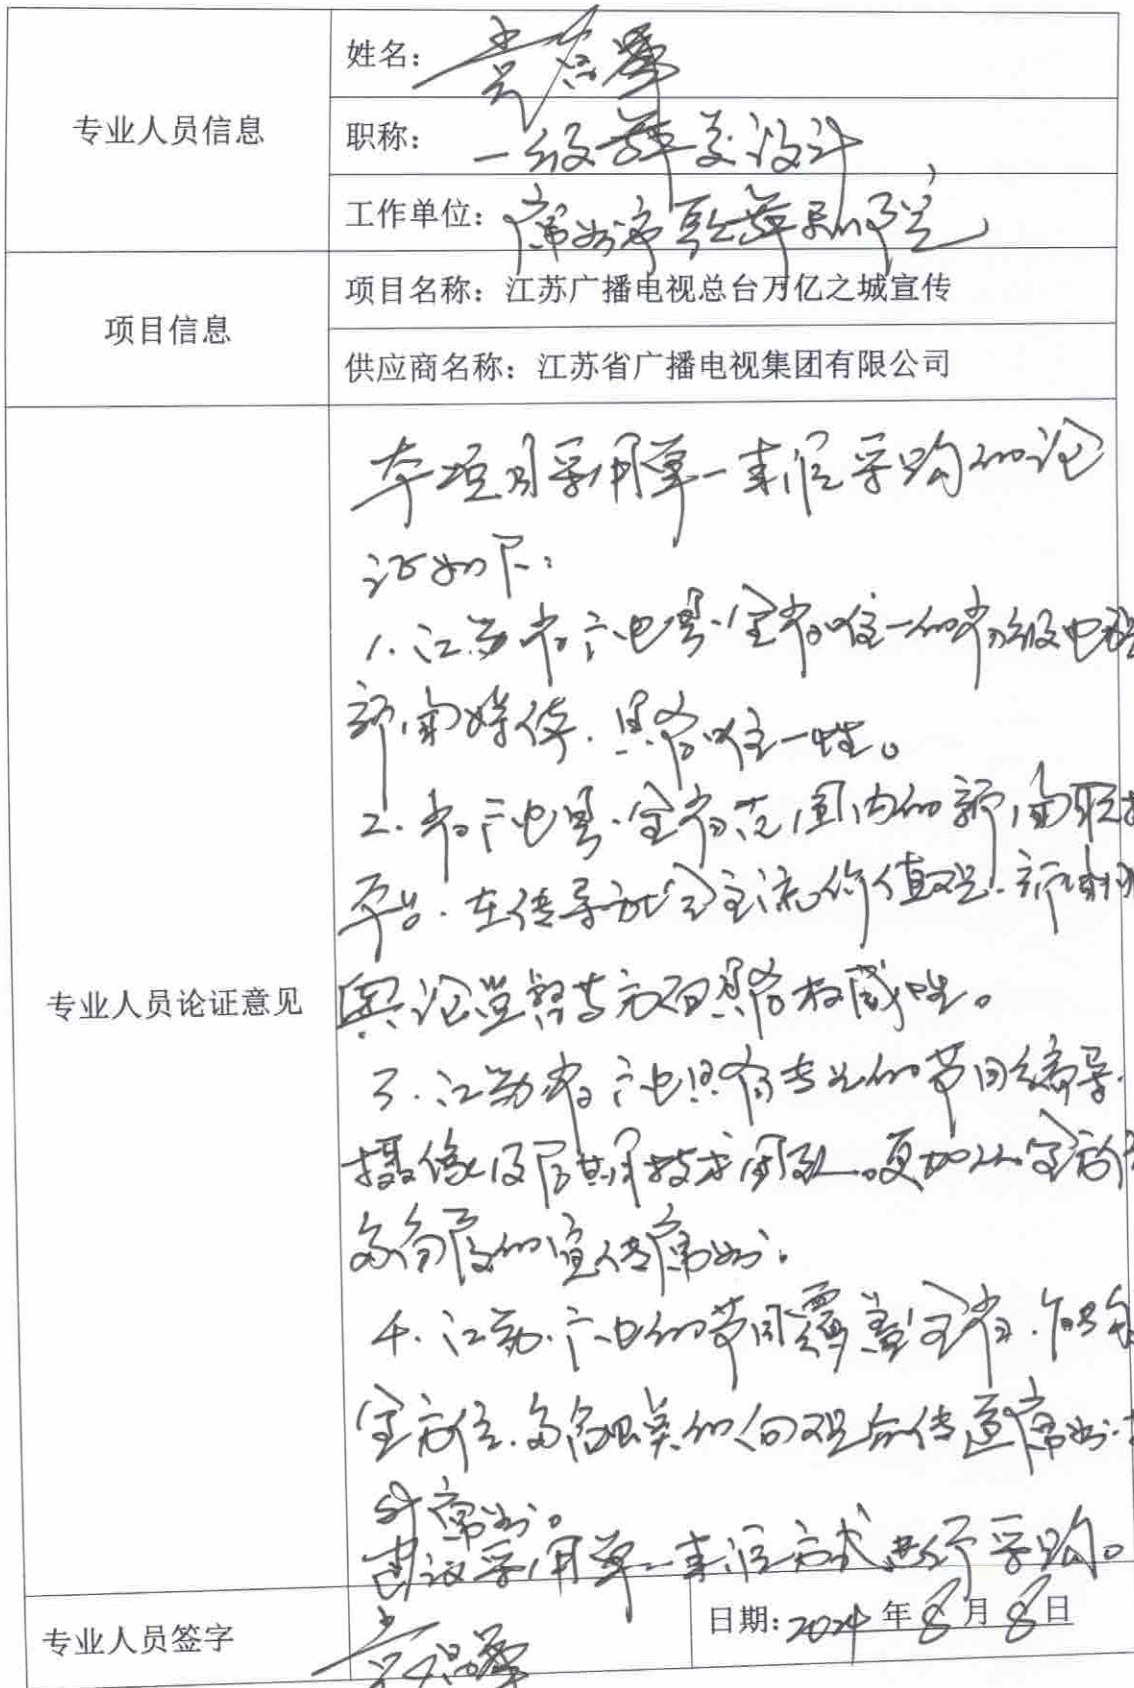 专业人员信息
姓名：
职称：一级舞美设计
工作单位：常州市歌舞剧院
项目信息
项目名称：江苏广播电视总台万亿之城宣传
供应商名称：江苏省广播电视集团有限公司
专业人员论证意见
本项目采用单一来源采购的论
证如下：
1.江苏省广电是全省唯一的省级电视
新闻媒体.具备唯一性。
2.省广电是全省范围内的新闻联
平台.在传导社会主流价值观.新
舆论监督等方面具备权威性。
3.江苏省广电具有专业的节目编导.
摄像及后期技术团队。更加从全方
多角度的宣传常州.
4.江苏.广电的节目覆盖全省.
全方位.多的向观众传通常州.
常州。
建议采用单一来源方式进行采购。
专业人员签字
日期:2024年8月8日